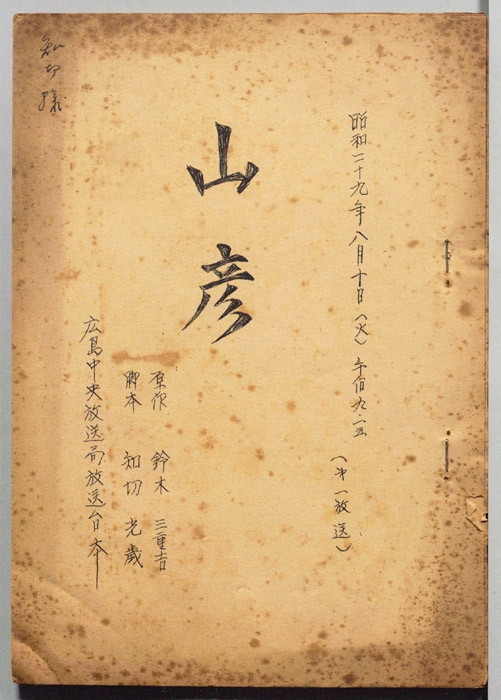 昭和二十九年八月十日(火)午后九
(㐧一放送)
山彦
原作 鈴木 三重吉
脚本 知切 光歳
広島中央放送局放送台本
知切様